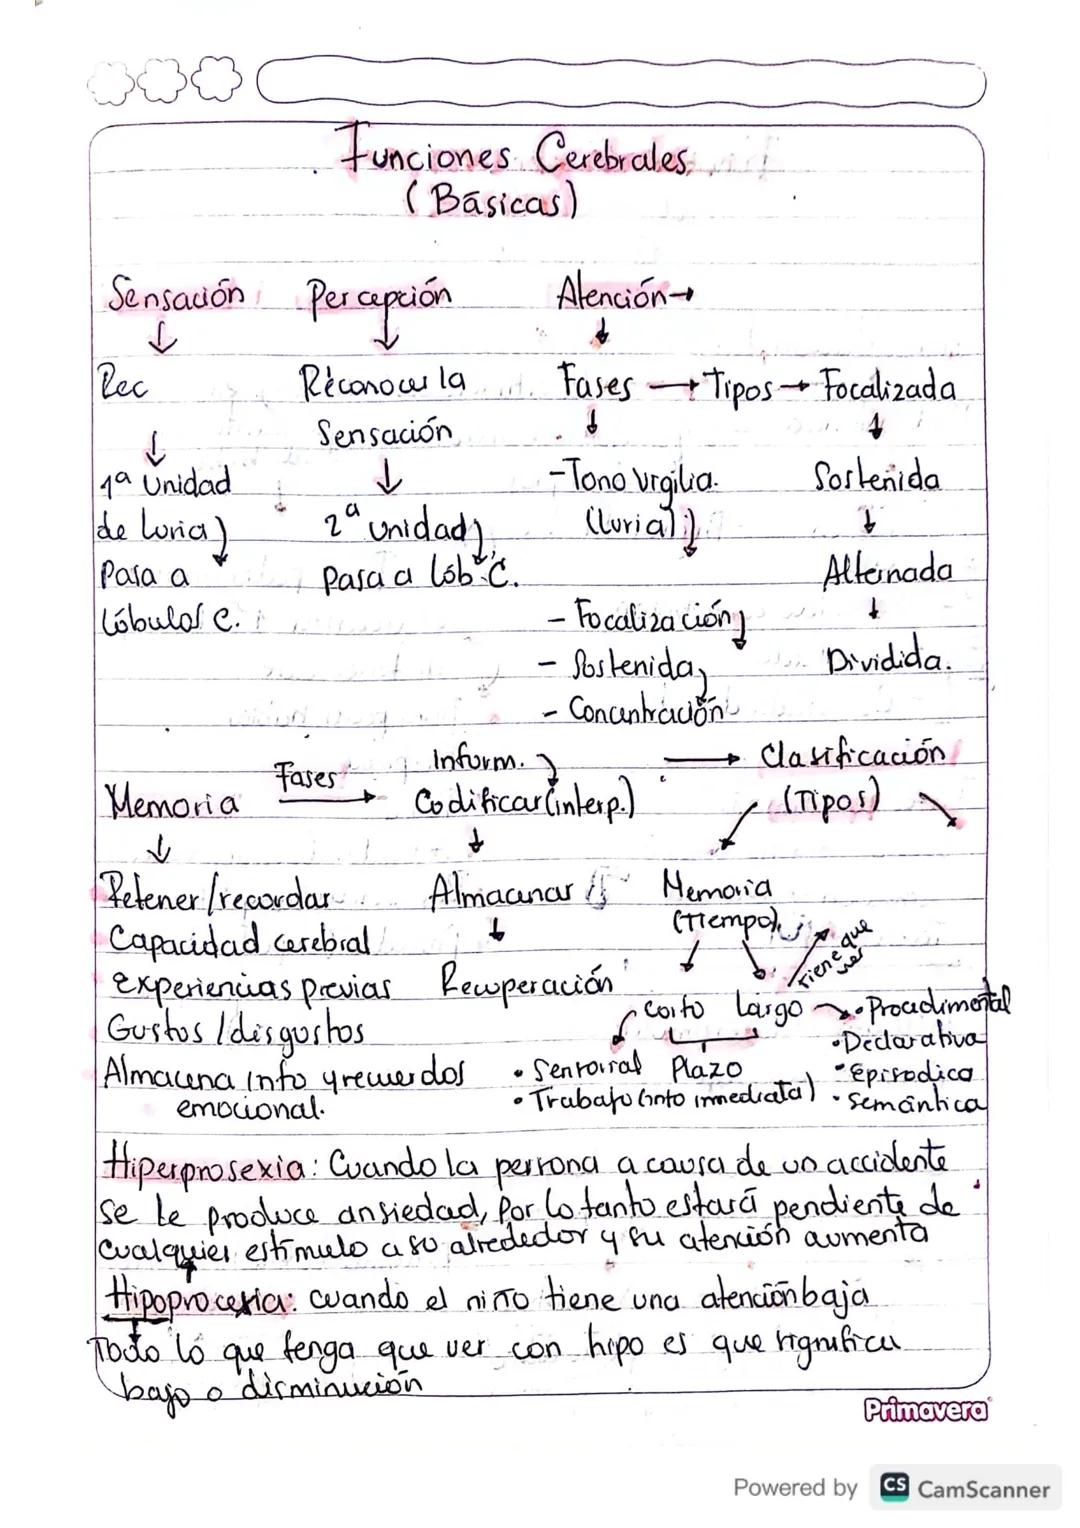 Funciones Cerebrales
(Básicas)
Sensación Percepción Atención→
↓ ↓ ↓
Rec Réconocer la Fases → Tipos → Focalizada
↓ Sensación ↓ ↓
1ª Unidad ↓ -Tono Vigilia. Sostenida
de luria) 2ª unidad) (luria) ↓
Pasa a pasa a lób C. Alternada
lóbulos C. - Focalización ↓
- Sostenida Dividida.
- Concentración
Memoria Fases → Inform. → Clasificación
↓ Codificar (interp.) (Tipos)
↓
Retener/recordar Almacenar Memoria
Capacidad cerebral ↓ (Tiempo) Tiene que ver
experiencias previas Recuperación
Gustos / disgustos corto largo → • Procedimental
• Declarativa
Almacena info y recuerdos • Sensorial Plazo • Episodica
emocional. • Trabajo (info inmediata) • Semántica
Hiperprosexia: Cuando la persona a causa de un accidente
se le produce ansiedad, por lo tanto estará pendiente de
cualquier estimulo a su alrededor y su atención aumenta
Hipoprocexia: cuando el niño tiene una atención baja
Todo lo que tenga que ver con hipo es que significa
bajo o disminución
Primavera
Powered by CS CamScanner